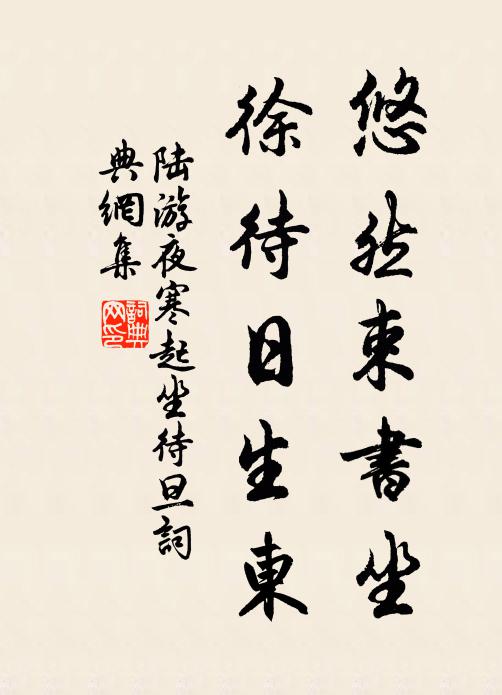 悠然束書坐
徐待日生東
陸游夜寒起坐待旦詞
典網集
詞典网印